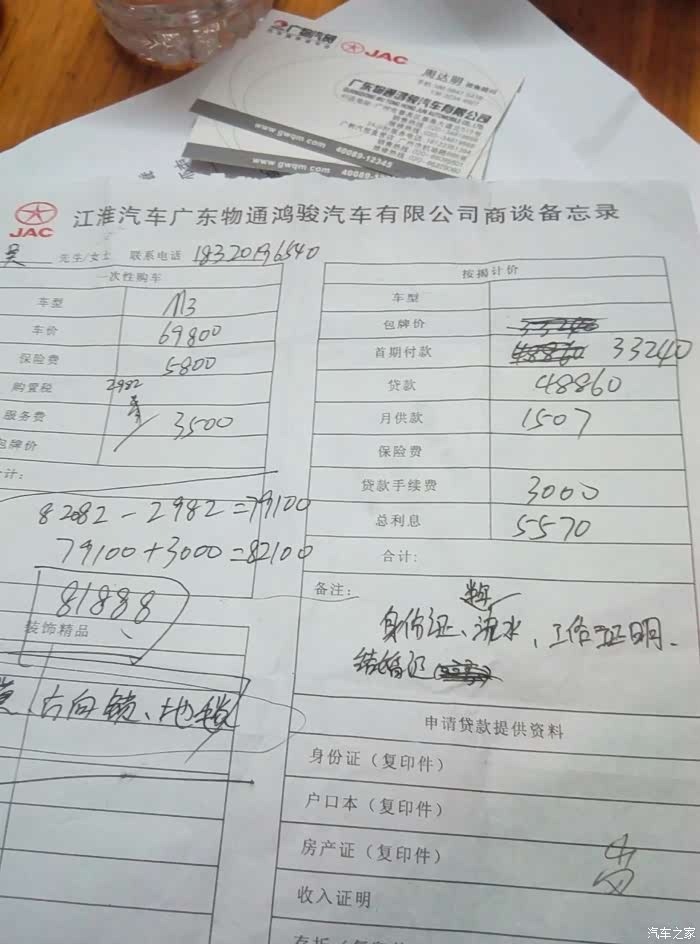 广物汽贸
JAC
周达明 销售顾问
广东物通鸿骏汽车有限公司
www.gwqm.com 40089-12345
www.gwqm.com 40089-12345
JAC
江淮汽车广东物通鸿骏汽车有限公司商谈备忘录
吴 先生/女士 联系电话 18320196540
一次性购车
车型 M3
车价 69800
保险费 5800
购置税 2982
服务费 3500
包牌价
合计:
82082-2982=79100
79100+3000=82100
81888
装饰精品
方向锁、地毯
按揭计价
车型
包牌价
首期付款 33240
贷款 48860
月供款 1507
保险费
贷款手续费 3000
总利息 5570
合计:
备注:
身份证、流水、工作证明、
结婚证
申请贷款提供资料
身份证(复印件)
户口本(复印件)
房产证(复印件)
收入证明
汽车之家